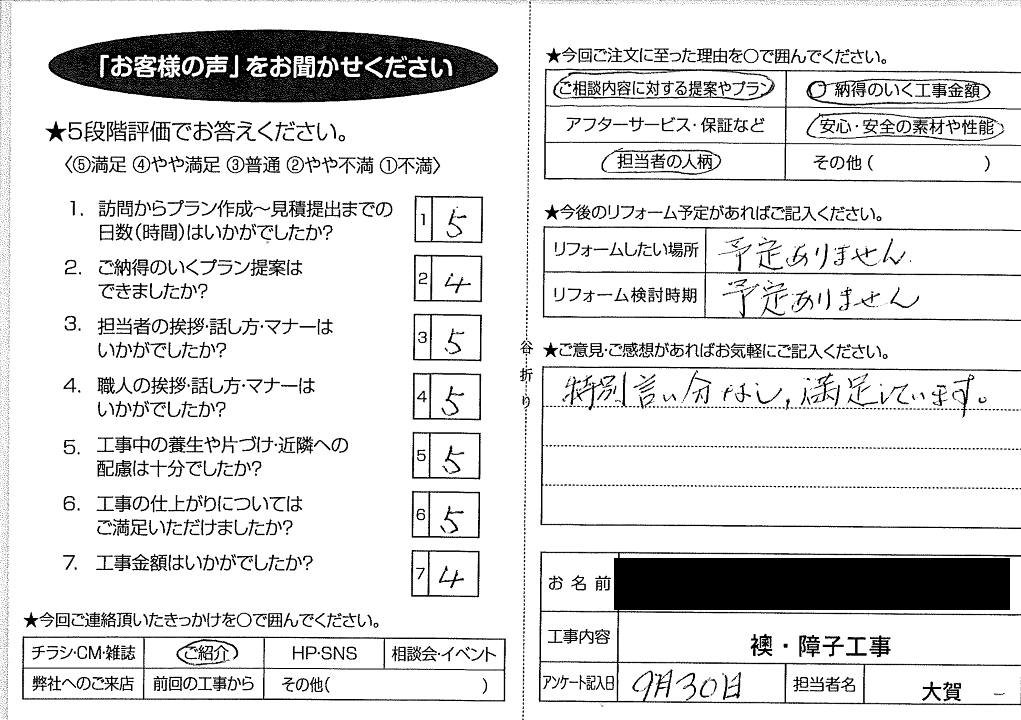 「お客様の声」をお聞かせください
★5段階評価でお答えください。
〈⑤満足 ④やや満足 ③普通 ②やや不満 ①不満〉
1. 訪問からプラン作成～見積提出までの
日数(時間)はいかがでしたか?
1 5
2. ご納得のいくプラン提案は
できましたか?
2 4
3. 担当者の挨拶・話し方・マナーは
いかがでしたか?
3 5
4. 職人の挨拶・話し方・マナーは
いかがでしたか?
4 5
5. 工事中の養生や片づけ・近隣への
配慮は十分でしたか?
5 5
6. 工事の仕上がりについては
ご満足いただけましたか?
6 5
7. 工事金額はいかがでしたか?
7 4
★今回ご連絡頂いたきっかけを〇で囲んでください。
チラシ・CM・雑誌 ご紹介 HP・SNS 相談会・イベント
弊社へのご来店 前回の工事から その他( )
谷折り
★今回ご注文に至った理由を〇で囲んでください。
ご相談内容に対する提案やプラン ご納得のいく工事金額
アフターサービス・保証など 安心・安全の素材や性能
担当者の人柄 その他( )
★今後のリフォーム予定があればご記入ください。
リフォームしたい場所 予定ありません
リフォーム検討時期 予定ありません
★ご意見・ご感想があればお気軽にご記入ください。
特別言い分なし,満足しています。
お名前
工事内容 襖・障子工事
アンケート記入日 9月30日 担当者名 大賀